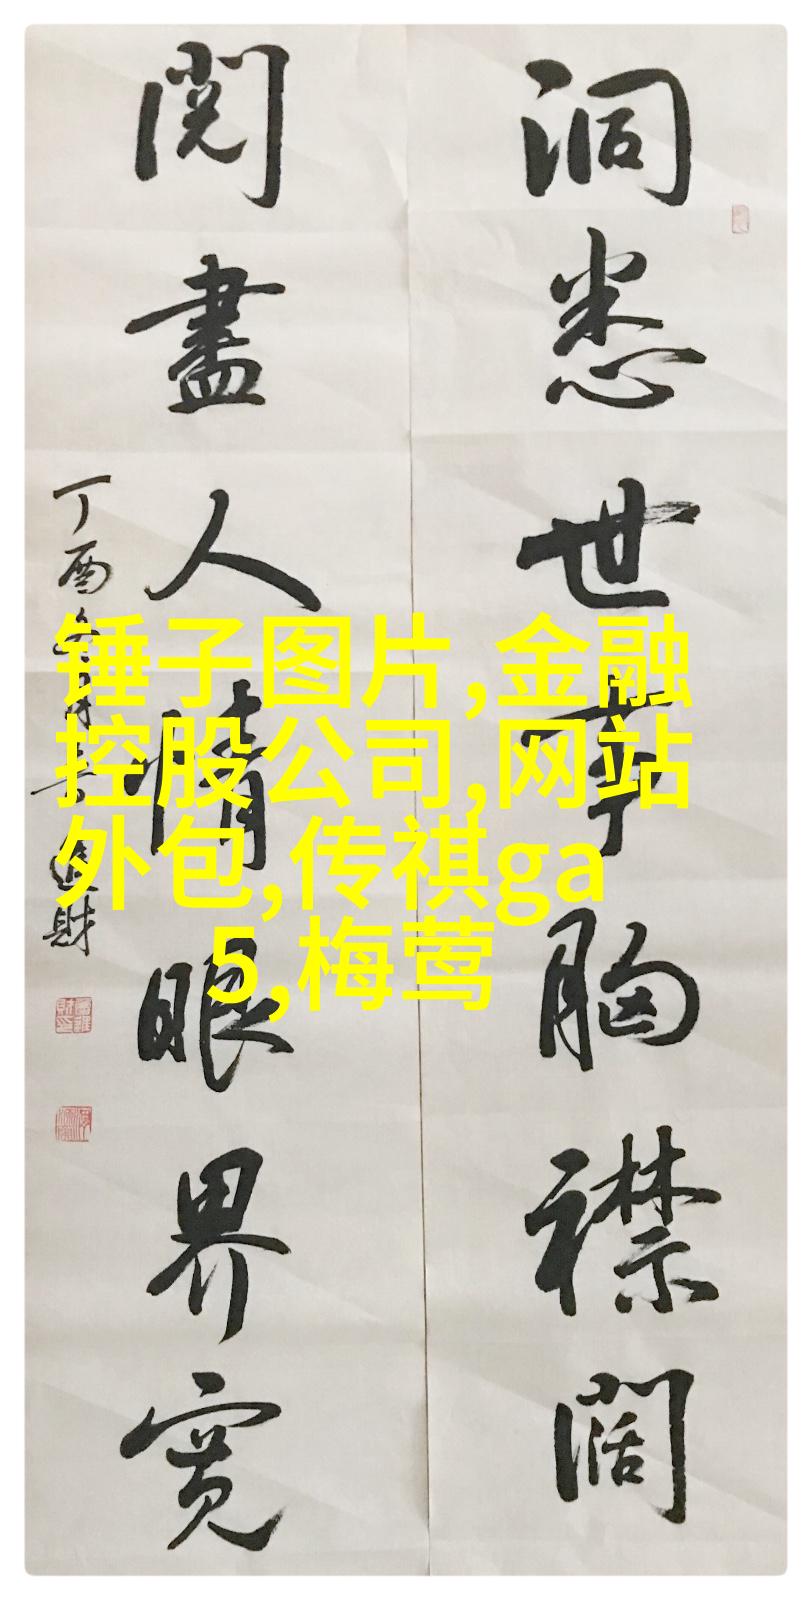 洞悉世事胸襟阔
閱盡人情眼界寬
丁酉冬月
進財
锤子图片,金融
控股公司,网站
外包,传祺ga
5,梅莺